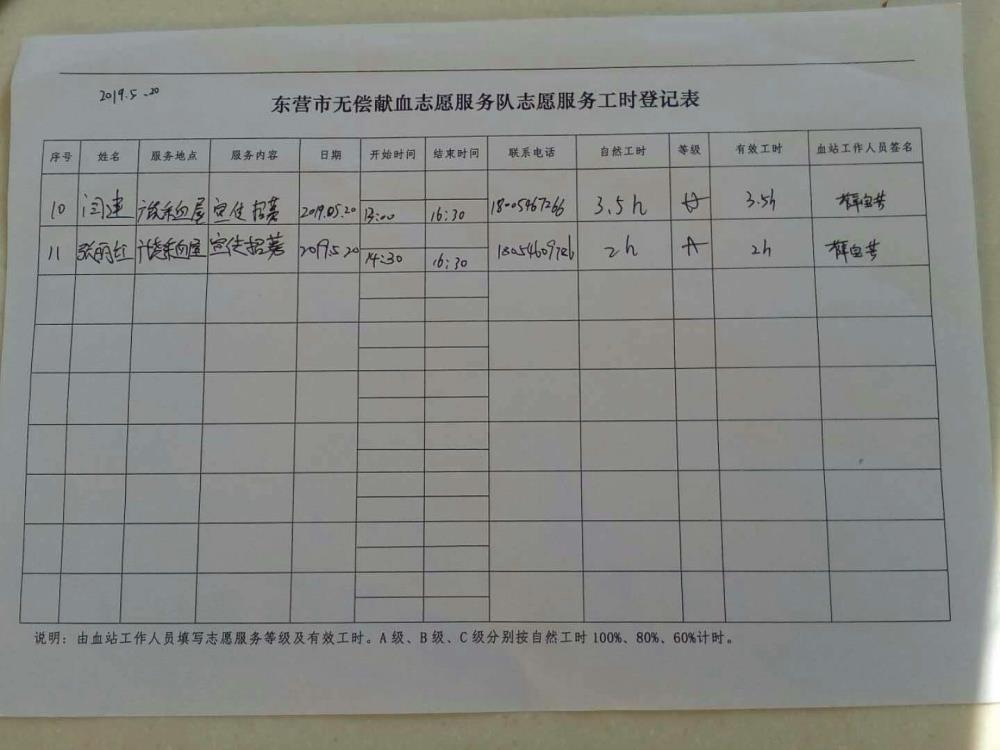 2019.5.20
东营市无偿献血志愿服务队志愿服务工时登记表
序号 姓名 服务地点 服务内容 日期 开始时间 结束时间 联系电话 自然工时 等级 有效工时 血站工作人员签名
10 闫建 采血屋 宣传招募 2019.05.20 13:00 16:30 18005467266 3.5h A 3.5h
11 张丽红 采血屋 宣传招募 2019.5.20 14:30 16:30 2h A 2h
说明：由血站工作人员填写志愿服务等级及有效工时。A级、B级、C级分别按自然工时100%、80%、60%计时。